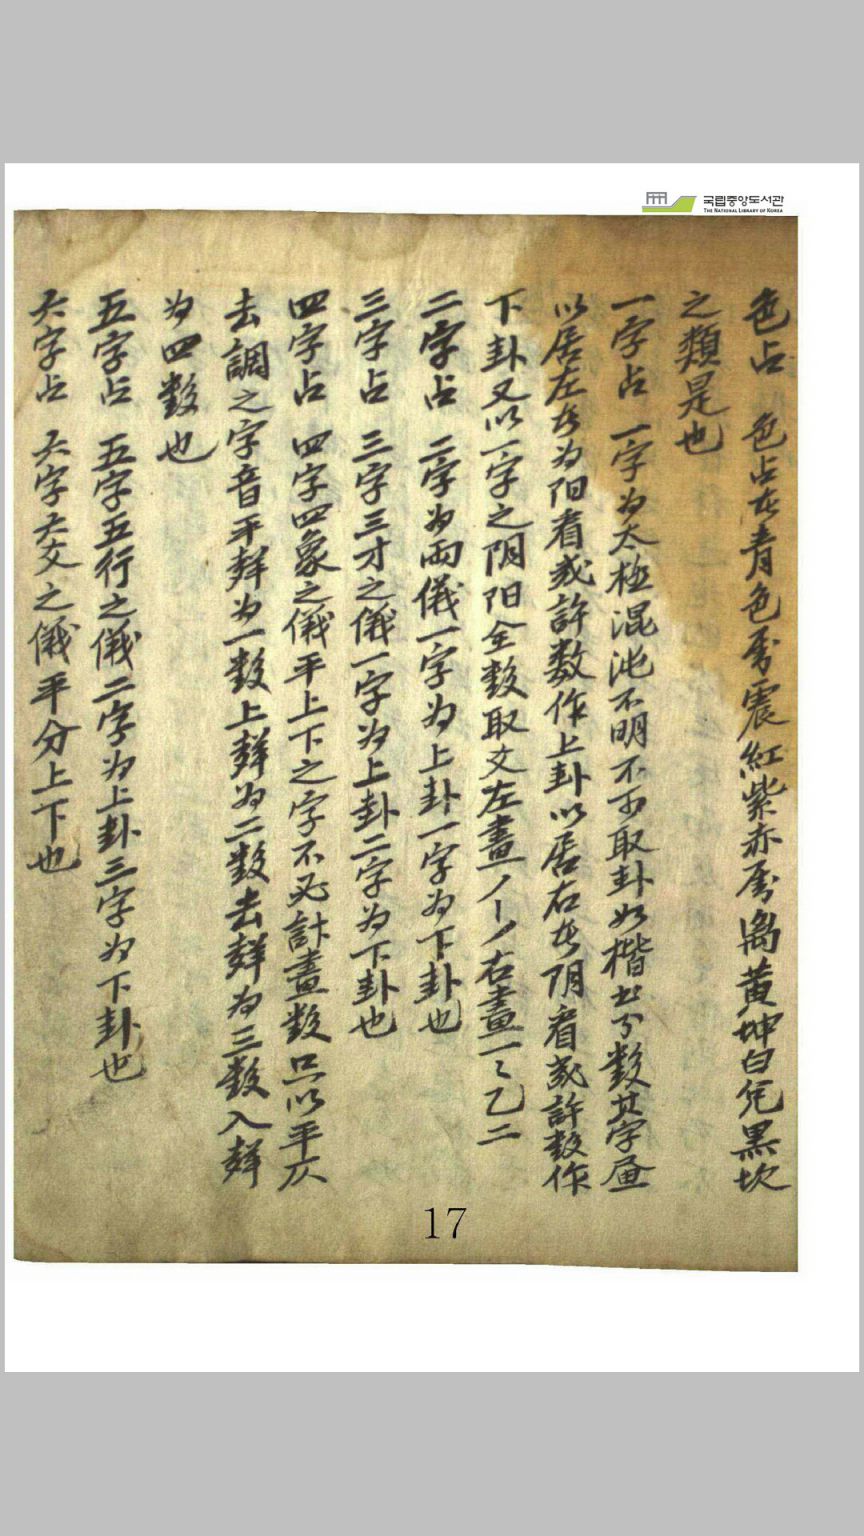 국립중앙도서관
THE NATIONAL LIBRARY OF KOREA
色占 色占於青色屬震紅紫赤屬离黃坤白兌黑坎
之類是也
一字占 一字為太極混沌不明不可取卦如楷书分数其字画
以居左於为阳看或許数作上卦以居右於阴看或許数作
下卦又以一字之阴阳全数取爻左畫丿丨丿右畫一乙二
二字占 二字为兩儀一字为上卦一字为下卦也
三字占 三字三才之儀一字为上卦二字为下卦也
四字占 四字四象之儀平上下之字不必計畫数只以平仄
去調之字音平聲为一数上聲为二数去聲为三数入聲
为四数也
五字占 五字五行之儀二字为上卦三字为下卦也
六字占 六字六爻之儀平分上下也
17